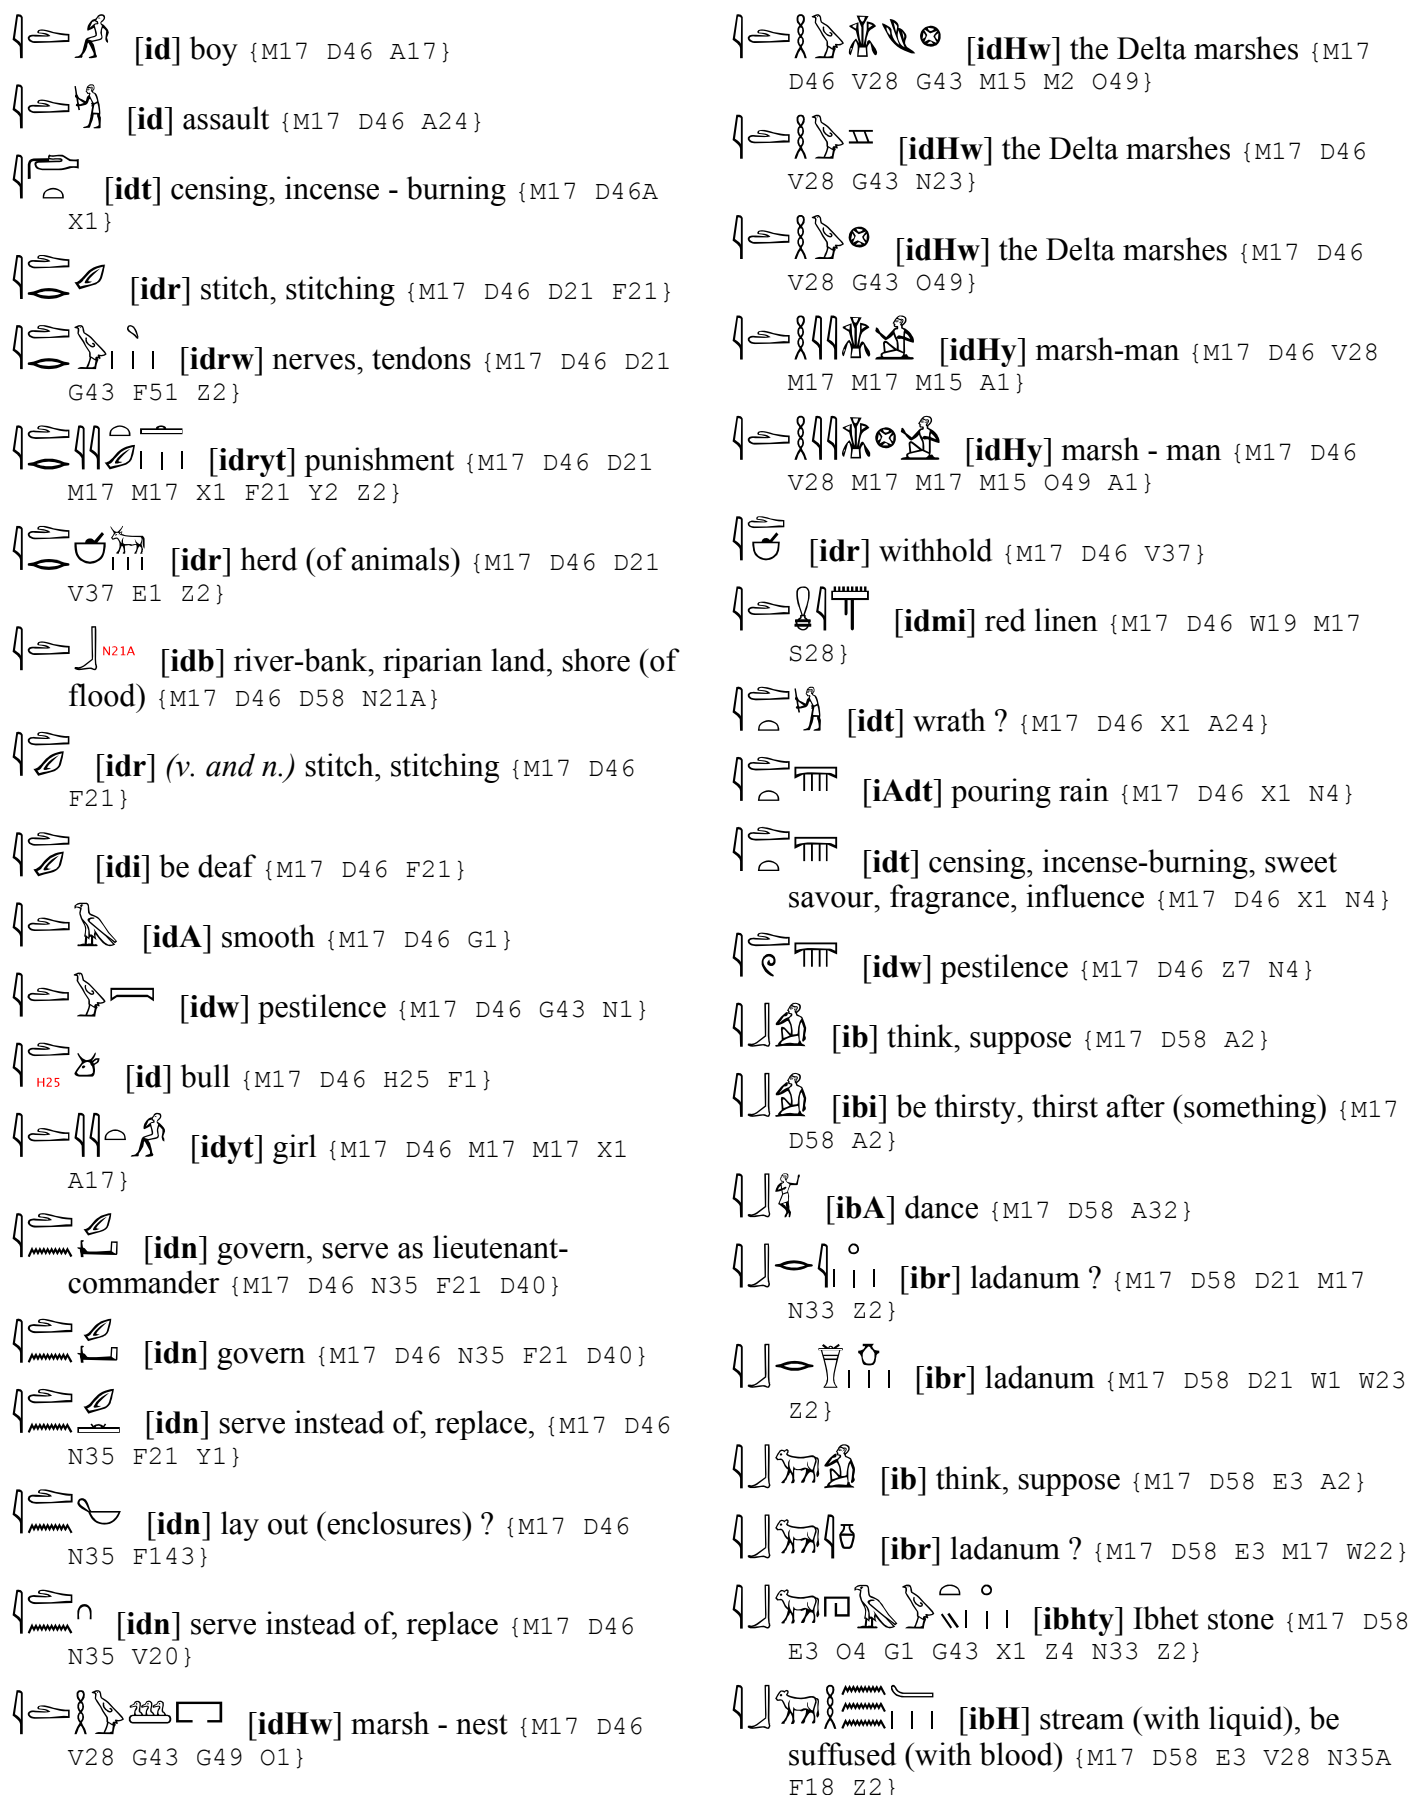 𓇋𓂧𓀔 [id] boy {M17 D46 A17}
𓇋𓂧𓀜 [id] assault {M17 D46 A24}
𓇋𓂨𓏏 [idt] censing, incense - burning {M17 D46A
X1}
𓇋𓂧𓂋𓄔 [idr] stitch, stitching {M17 D46 D21 F21}
𓇋𓂧𓂋𓅱𓄹𓏥 [idrw] nerves, tendons {M17 D46 D21
G43 F51 Z2}
𓇋𓂧𓂋𓇋𓇋𓏏𓄔𓏜𓏥 [idryt] punishment {M17 D46 D21
M17 M17 X1 F21 Y2 Z2}
𓇋𓂧𓂋𓎱𓃒𓏥 [idr] herd (of animals) {M17 D46 D21
V37 E1 Z2}
𓇋𓂧𓃀N21A [idb] river-bank, riparian land, shore (of
flood) {M17 D46 D58 N21A}
𓇋𓂧𓄔 [idr] (v. and n.) stitch, stitching {M17 D46
F21}
𓇋𓂧𓄔 [idi] be deaf {M17 D46 F21}
𓇋𓂧𓄿 [idA] smooth {M17 D46 G1}
𓇋𓂧𓅱𓇯 [idw] pestilence {M17 D46 G43 N1}
𓇋𓂧H25𓃾 [id] bull {M17 D46 H25 F1}
𓇋𓂧𓇋𓇋𓏏𓀔 [idyt] girl {M17 D46 M17 M17 X1
A17}
𓇋𓂧𓈖𓄔𓂡 [idn] govern, serve as lieutenant-
commander {M17 D46 N35 F21 D40}
𓇋𓂧𓈖𓄔𓂡 [idn] govern {M17 D46 N35 F21 D40}
𓇋𓂧𓈖𓄔𓏛 [idn] serve instead of, replace, {M17 D46
N35 F21 Y1}
𓇋𓂧𓈖 [idn] lay out (enclosures) ? {M17 D46
N35 F143}
𓇋𓂧𓈖𓎆 [idn] serve instead of, replace {M17 D46
N35 V20}
𓇋𓂧𓎛𓅱𓅸𓉐 [idHw] marsh - nest {M17 D46
V28 G43 G49 O1}
𓇋𓂧𓎛𓅱𓇇𓆰𓊖 [idHw] the Delta marshes {M17
D46 V28 G43 M15 M2 O49}
𓇋𓂧𓎛𓅱𓈇 [idHw] the Delta marshes {M17 D46
V28 G43 N23}
𓇋𓂧𓎛𓅱𓊖 [idHw] the Delta marshes {M17 D46
V28 G43 O49}
𓇋𓂧𓎛𓇋𓇋𓇇𓀀 [idHy] marsh-man {M17 D46 V28
M17 M17 M15 A1}
𓇋𓂧𓎛𓇋𓇋𓇇𓊖𓀀 [idHy] marsh - man {M17 D46
V28 M17 M17 M15 O49 A1}
𓇋𓂧𓎱 [idr] withhold {M17 D46 V37}
𓇋𓂧𓏇𓇋𓋳 [idmi] red linen {M17 D46 W19 M17
S28}
𓇋𓂧𓏏𓀜 [idt] wrath ? {M17 D46 X1 A24}
𓇋𓂧𓏏𓇲 [iAdt] pouring rain {M17 D46 X1 N4}
𓇋𓂧𓏏𓇲 [idt] censing, incense-burning, sweet
savour, fragrance, influence {M17 D46 X1 N4}
𓇋𓂧𓏲𓇲 [idw] pestilence {M17 D46 Z7 N4}
𓇋𓃀𓀁 [ib] think, suppose {M17 D58 A2}
𓇋𓃀𓀁 [ibi] be thirsty, thirst after (something) {M17
D58 A2}
𓇋𓃀𓀥 [ibA] dance {M17 D58 A32}
𓇋𓃀𓂋𓇋𓈒𓏥 [ibr] ladanum ? {M17 D58 D21 M17
N33 Z2}
𓇋𓃀𓂋𓎯𓏌𓏥 [ibr] ladanum {M17 D58 D21 W1 W23
Z2}
𓇋𓃀𓃙𓀁 [ib] think, suppose {M17 D58 E3 A2}
𓇋𓃀𓃙𓇋𓏊 [ibr] ladanum ? {M17 D58 E3 M17 W22}
𓇋𓃀𓃙𓉔𓄿𓅱𓏏𓏭𓈒𓏥 [ibhty] Ibhet stone {M17 D58
E3 O4 G1 G43 X1 Z4 N33 Z2}
𓇋𓃀𓃙𓎛𓈗𓄑𓏥 [ibH] stream (with liquid), be
suffused (with blood) {M17 D58 E3 V28 N35A
F18 Z2}